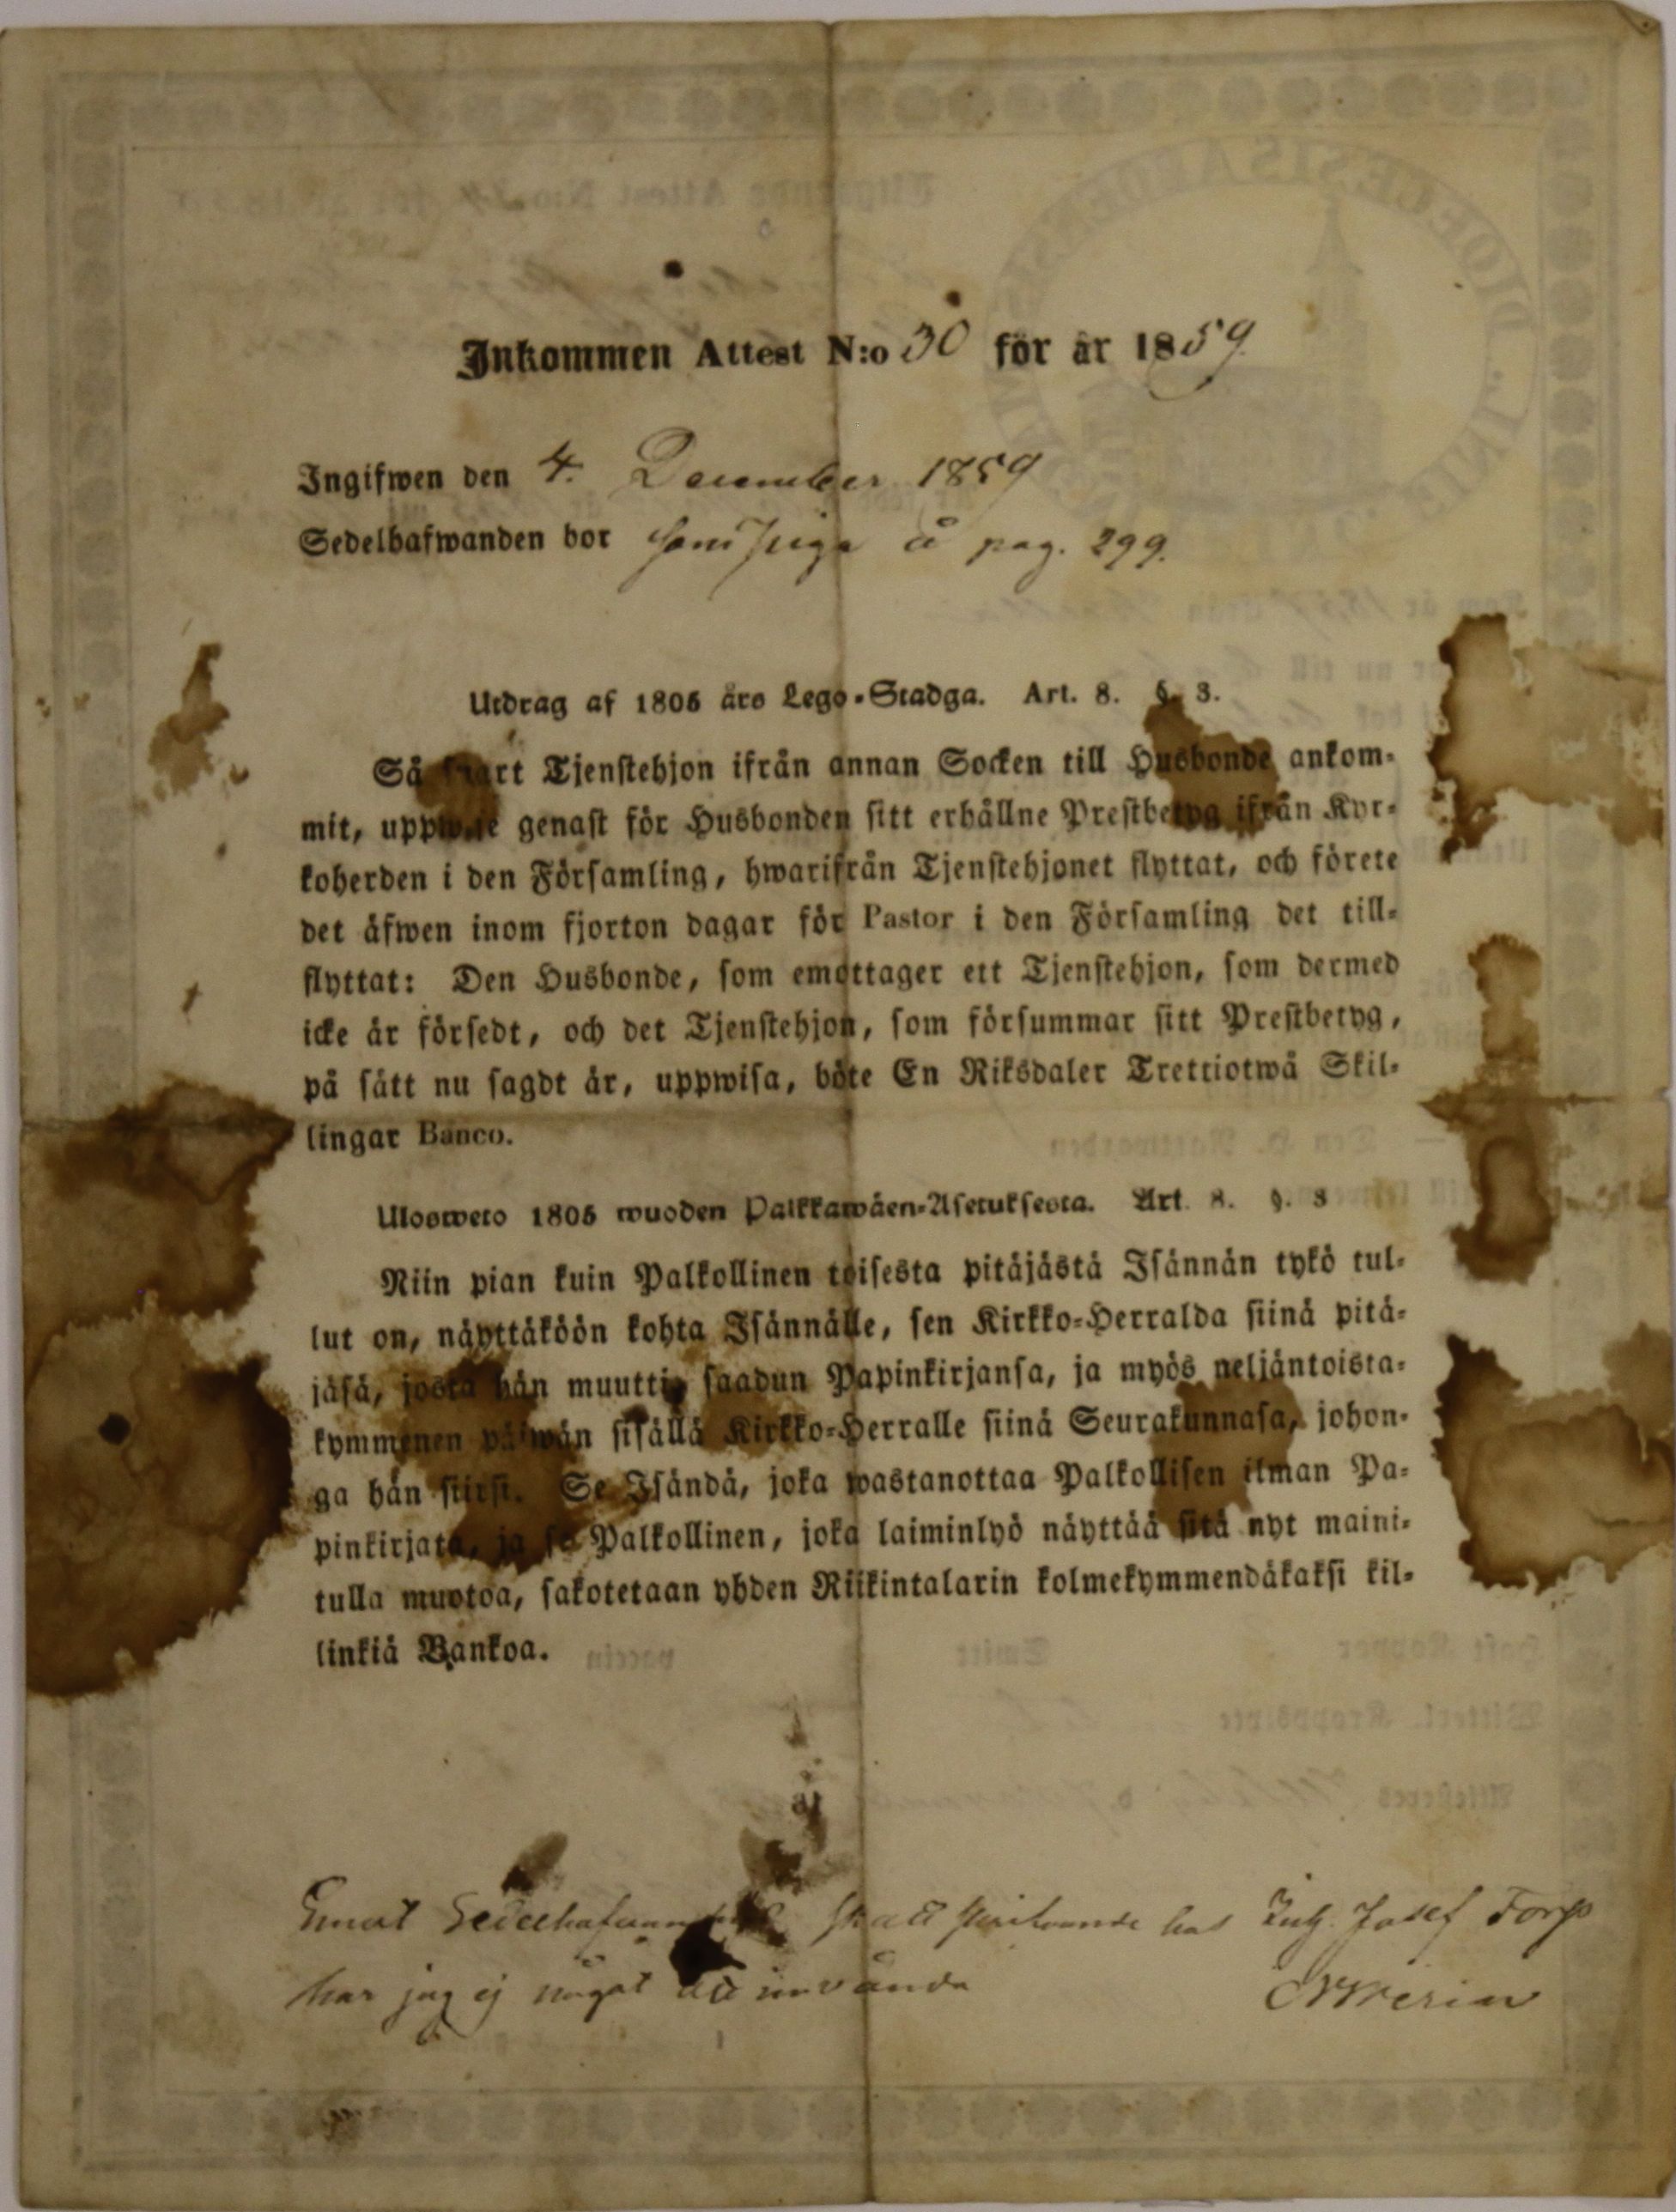 Inkommen Attest N:o 30 för år 1859.
Ingifwen den 4. December 1859
Sedelhafwanden bor som Piga å pag. 299.
Utdrag af 1805 års Lego-Stadga. Art. 8. §. 3.
Så snart Tjenstehjon ifrån annan Socken till Husbonde ankom-
mit, uppwise genast för Husbonden sitt erhållne Prestbetyg ifrån Kyr-
koherden i den Församling, hwarifrån Tjenstehjonet flyttat, och förete
det äfwen inom fjorton dagar för Pastor i den Församling det till-
flyttat: Den Husbonde, som emottager ett Tjenstehjon, som dermed
icke är försedt, och det Tjenstehjon, som försummar sitt Prestbetyg,
på sätt nu sagdt är, uppwisa, böte En Riksdaler Trettiotwå Skil-
lingar Banco.
Ulosweto 1805 wuoden Palkkawäen-Asetuksesta. Art. 8. §. 3
Niin pian kuin Palkollinen toisesta pitäjästä Isännän tykö tul-
lut on, näyttäköön kohta Isännälle, sen Kirkko-Herralda siinä pitä-
jäsä, josta hän muutti, saadun Papinkirjansa, ja myös neljäntoista-
kymmenen päiwän sisällä Kirkko-Herralle siinä Seurakunnasa, johon-
ga hän siirsi. Se Isändä, joka wastanottaa Palkollisen ilman Pa-
pinkirjata, ja se Palkollinen, joka laiminlyö näyttää sitä nyt maini-
tulla muotoa, sakotetaan yhden Riikintalarin kolmekymmendäkaksi kil-
linkiä Bankoa.
Emot Sedelhafwandens hos Josef Torp
har jag ej något att invända